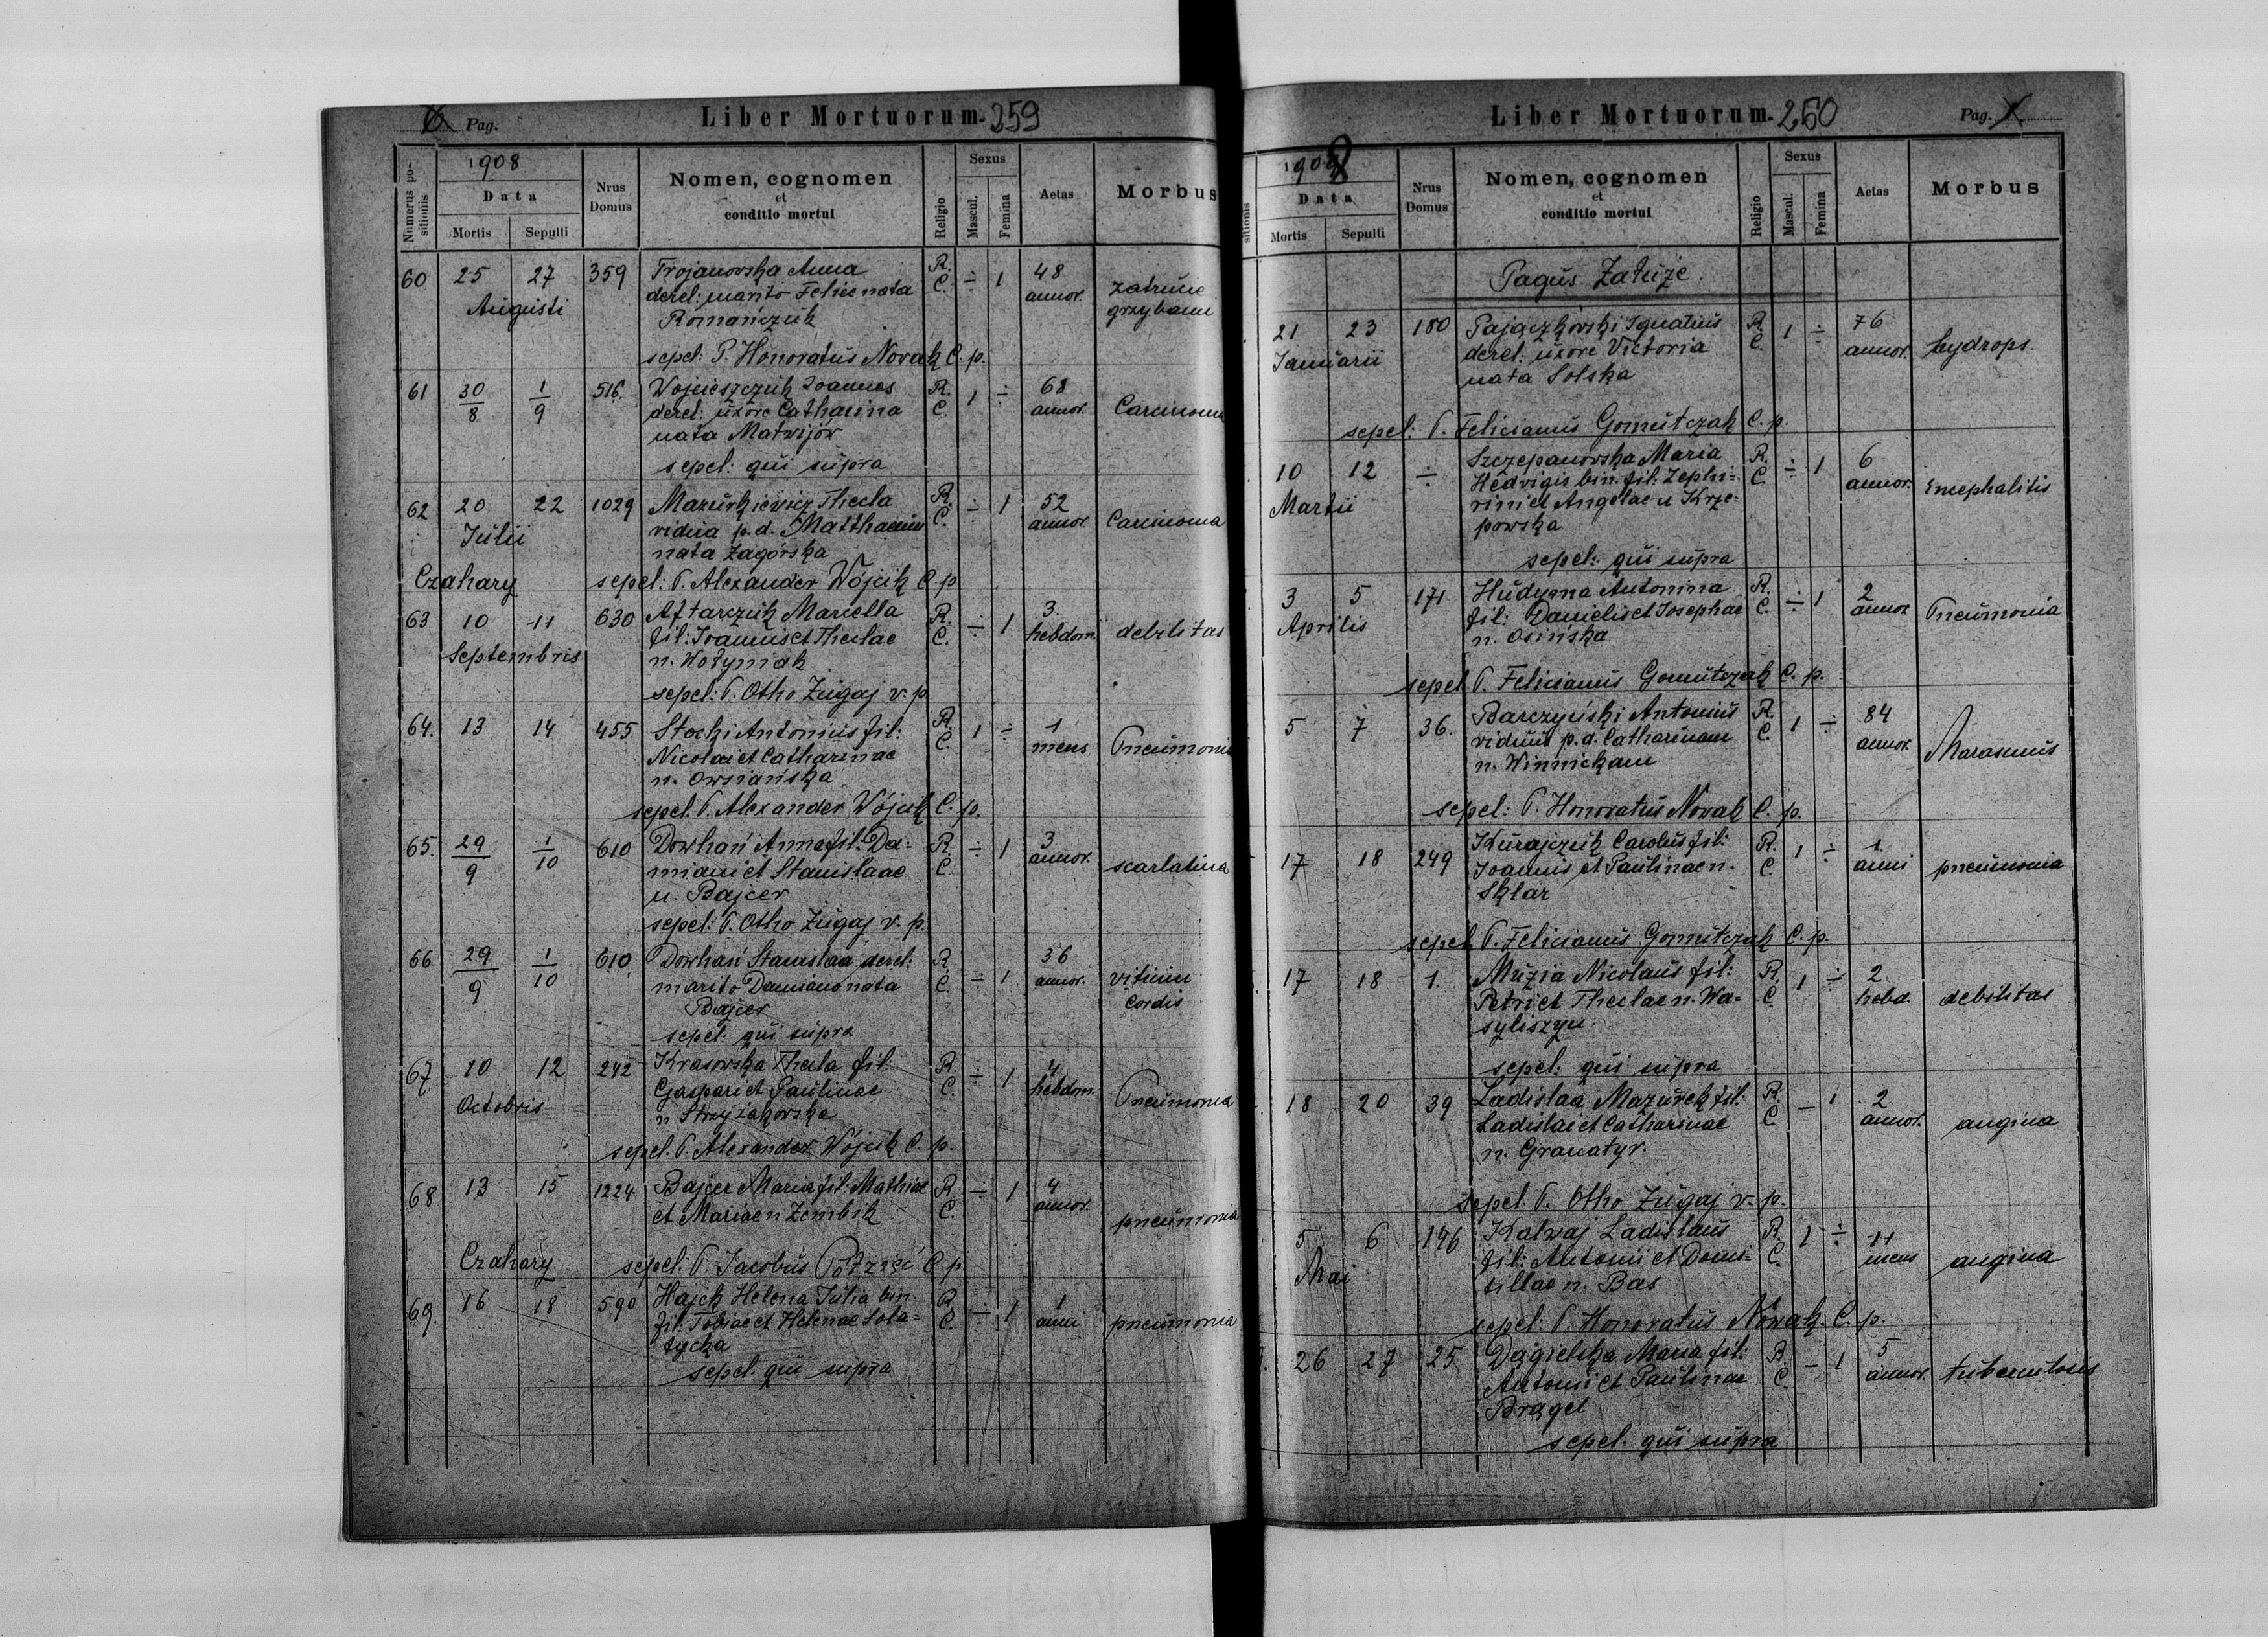 6 Pag.
Liber Mortuorum. 259
Numerus positionis
1908
Data
Mortis
Sepulti
Nrus Domus
Nomen, cognomen
et
conditio mortui
Religio
Sexus
Mascul.
Femina
Aetas
Morbus
60 25 27 359 Trojanowska Anna R. C. ÷ 1 48 annor. zatrucie grzybami
Augusti
derel: marito Felice nata
Romańczuk
sepel: P. Honoratus Nowak C. p.
61 30/8 1/9 516. Wojcieszczuk Joannes R. C. 1 ÷ 68 annor. Carcinoma
derel: uxore Catharina
nata Matwijów
sepel: qui supra
62 20 22 1029 Mazurkiewicz Thecla R. C. ÷ 1 52 annor. Carcinoma
Julii
vidua p. d. Matthaeum
nata Zagórska
Czahary
sepel: P. Alexander Wójcik C. p
63 10 11 630 Aftarczuk Mariella R. C. ÷ 1 3. hebdom. debilitas
Septembris
fil: Joannis et Theclae
n. Wołyniak
sepel: P. Otho Zugaj v. p
64. 13 14 455 Stocki Antonius fil: R. C. 1 ÷ 1 mens Pneumonia
Nicolai et Catharinae
n. Owsiańska
sepel. P. Alexander Wójcik C. p.
65. 29/9 1/10 610 Dowhań Anna fil: Da= R. C. ÷ 1 3 annor. scarlatina
miani et Stanislaae
n. Bajcer
sepel: P. Otho Zugaj v. p.
66 29/9 1/10 610 Dowhań Stanislaa derel: R. C. ÷ 1 36 annor. vitium cordis
marito Damiano nata
Bajcer
sepel: qui supra
67 10 12 242 Krasowska Thecla fil: R. C. ÷ 1 4 hebdom. Pneumonia
Octobris
Gaspari et Paulinae
n Strzyżakowska
sepel. P. Alexander Wójcik C. p.
68 13 15 1224. Bajcer Maria fil: Mathiae R. C. ÷ 1 4 annor. pneumonia
et Mariae n Zembik
Czahary
sepel: P. Jacobus Półzięć C. p
69. 16 18 590 Hajek Helena Julia bin. R. C. ÷ 1 1 anni pneumonia
fil. Tobiae et Helenae Soła=
tycka
sepel. qui supra
Liber Mortuorum. 260
Pag.
sitionis
1908
Data
Mortis
Sepulti
Nrus Domus
Nomen, cognomen
et
conditio mortui
Religio
Sexus
Mascul.
Femina
Aetas
Morbus
Pagus Załuże.
21 23 180 Pajączkowski Ignatius R. C. 1 ÷ 76 annor. hydrops.
Januarii
derel: uxore Victoria
nata Solska
sepel: P. Felicianus Gomułczak C. p.
10 12 ÷ Szczepanowska Maria R. C. ÷ 1 6 annor. Encephalitis
Martii
Hedvigis bin. fil: Zephi=
rini et Angelae n Krze=
powska
sepel: qui supra
3 5 171 Hudyma Antonina R. C. ÷ 1 2 annor Pneumonia
Aprilis
fil: Danielis et Josephae
n. Osińska
sepel P. Felicianus Gomułczak C. p.
5 7 36. Barczyński Antonius R. C. 1 ÷ 84 annor. Marasmus
viduus p. d. Catharinam
n. Winnickam
sepel: P. Honoratus Nowak C. p.
17 18 249 Kurajczuk Carolus fil: R. C. 1 ÷ 1 anni pneumonia
Joannis et Paulinae n.
Sklar
sepel P. Felicianus Gomułczak C. p.
17 18 1. Muzia Nicolaus fil: R. C 1 ÷ 2 hebd. debilitas
Petri et Theclae n. Wa=
syliszyn.
sepel: qui supra
18 20 39 Ladislaa Mazurek fil: R. C — 1 2 annor. angina
Ladislai et Catharinae
n. Granatyr.
sepel. P. Otho Zugaj v. p.
5 6 146 Kalwaj Ladislaus R. C. 1 ÷ 11 mens angina
Mai
fil: Antonii et Domi=
tillae n. Bas
sepel: P. Honoratus Nowak C. p.
26 27 25 Dągielska Maria fil: R. C. — 1 5 annor. tuberculosis
Antonii et Paulinae
Brągel
sepel. qui supra